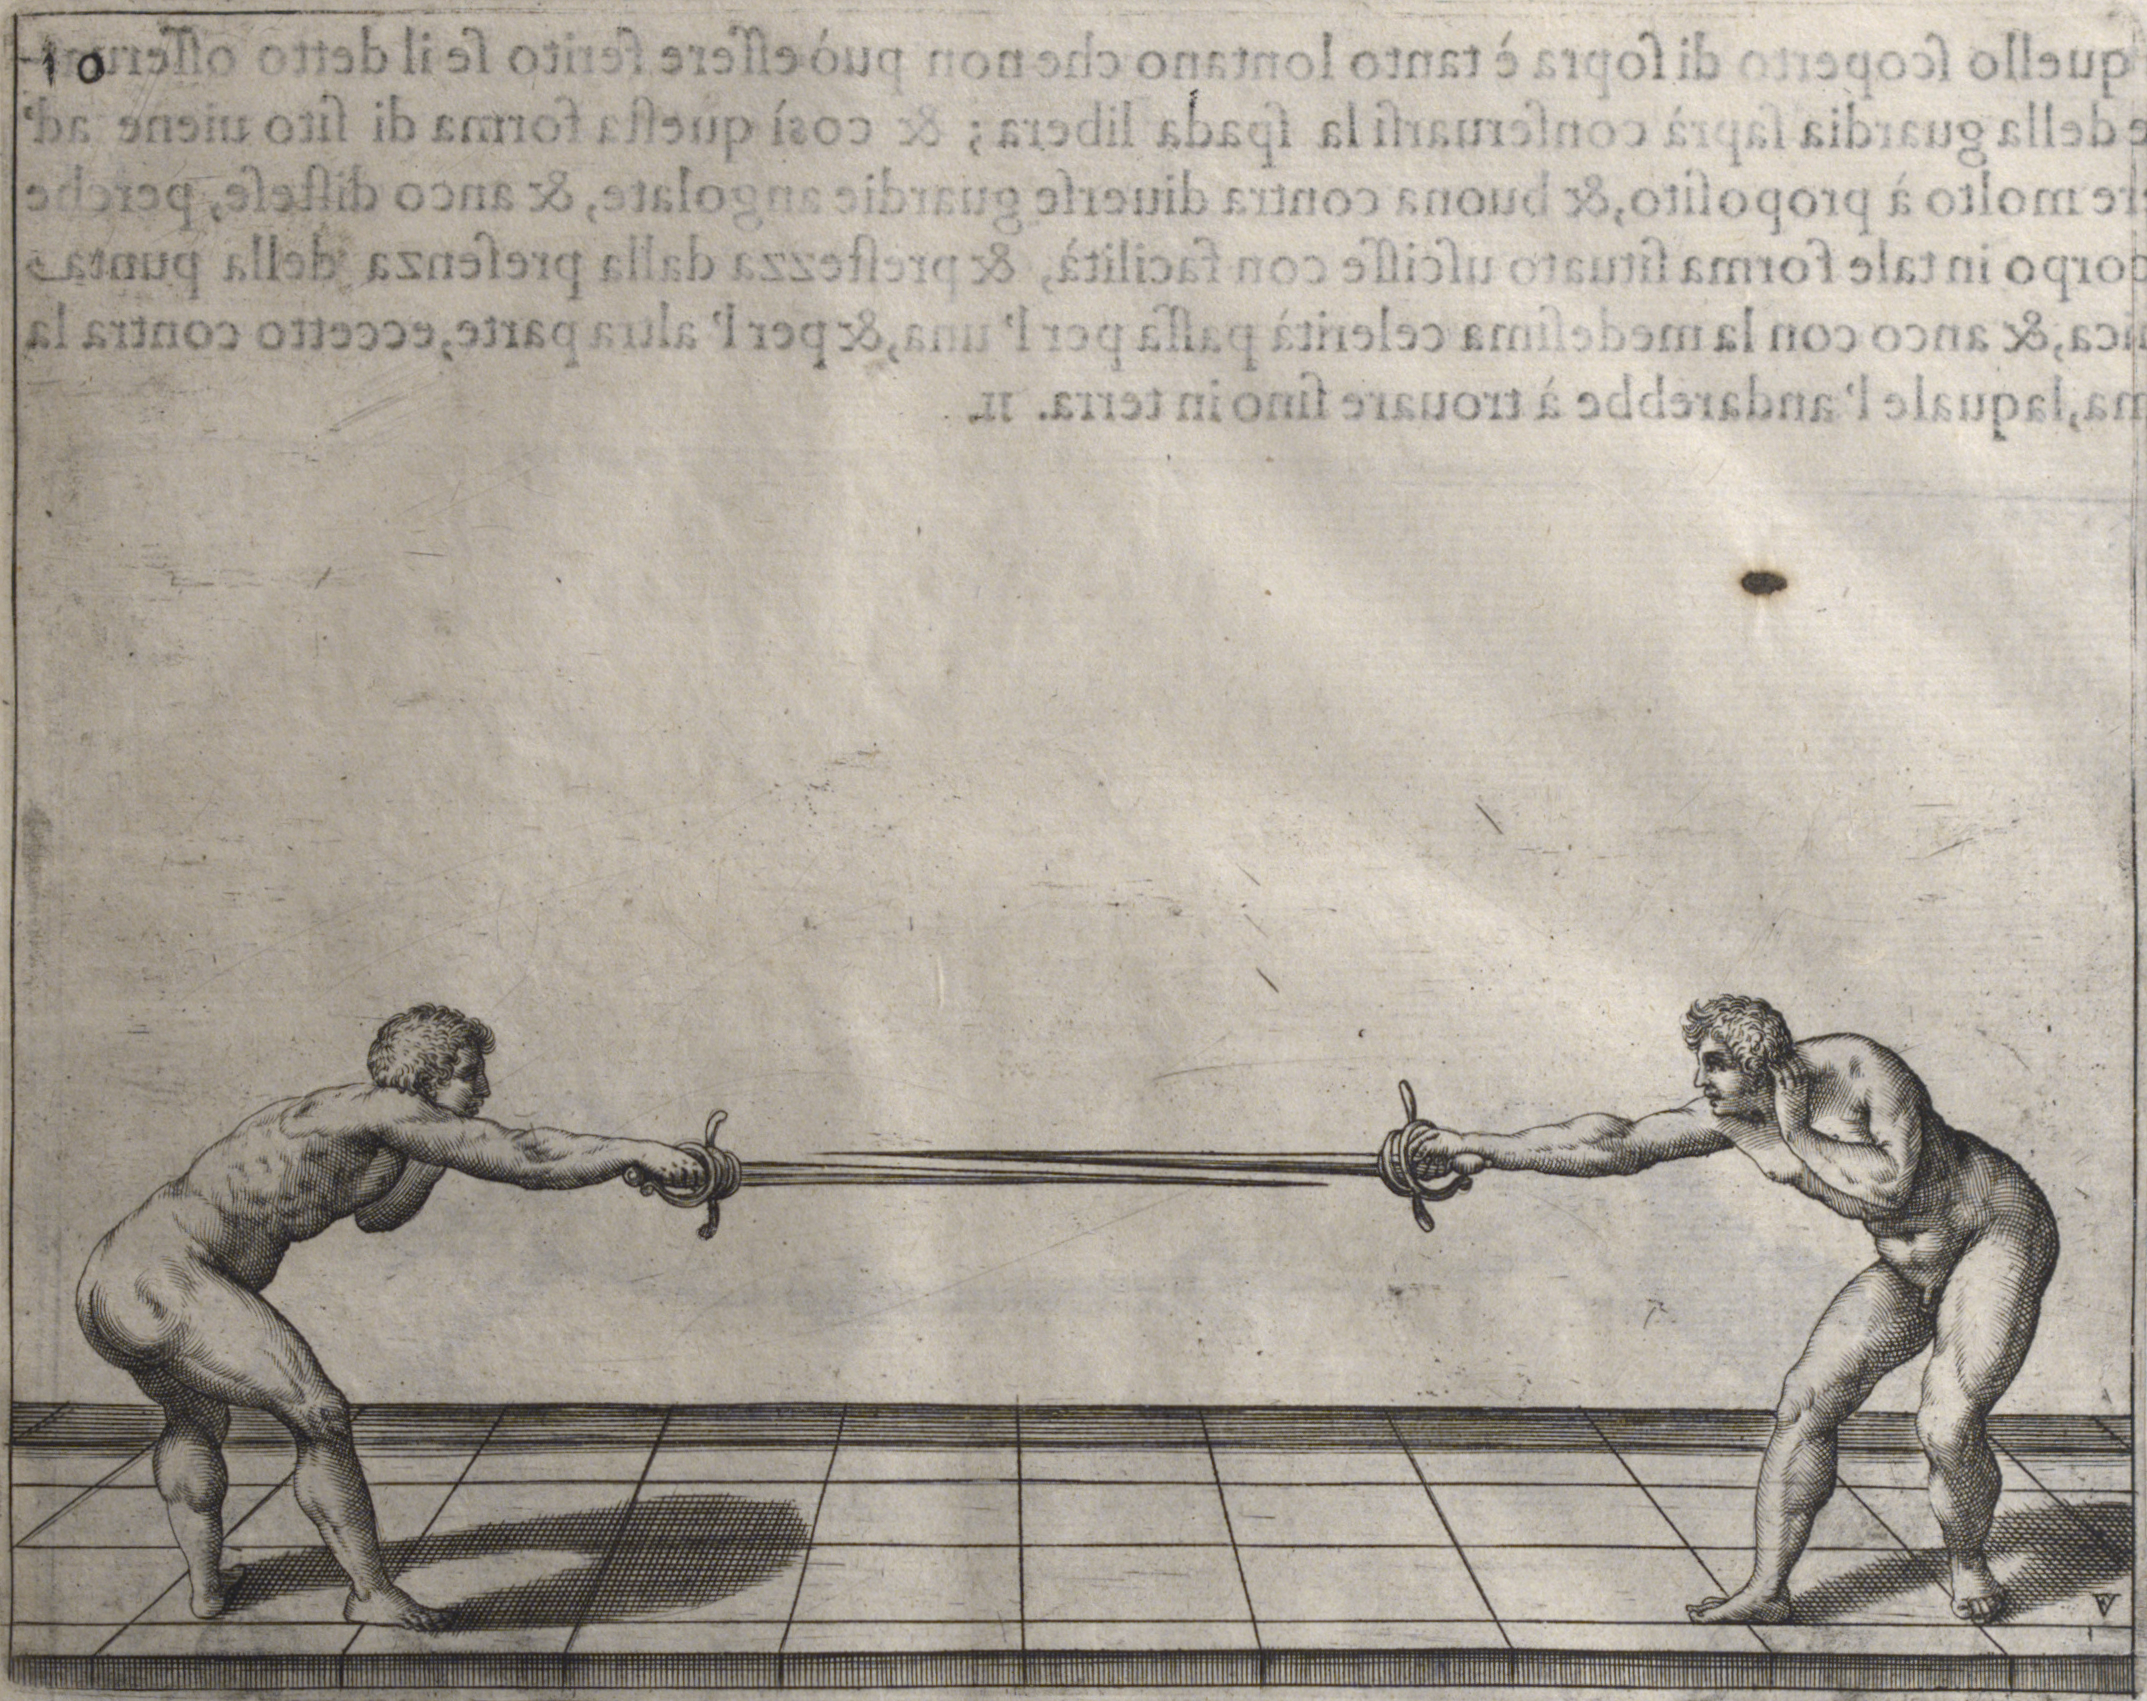 10
quello ſcoperto di ſopra è tanto lontano che non può eſſere ferito ſe il detto oſſerua-
e della guardia ſaprà conſeruarſi la ſpada libera; & così queſta forma di ſito uiene ad'
re molto à propoſito, & buona contra diuerſe guardie angolate, & anco diſteſe, perche
corpo in tale forma ſituato uſciſſe con facilità, & preſtezza dalla preſenſa della punta
ica, & anco con la medeſima celerità paſſa per l' una, & per l' altra parte, eccetto contra la
ma, laquale l' andarebbe à trouare ſino in terra. 11.